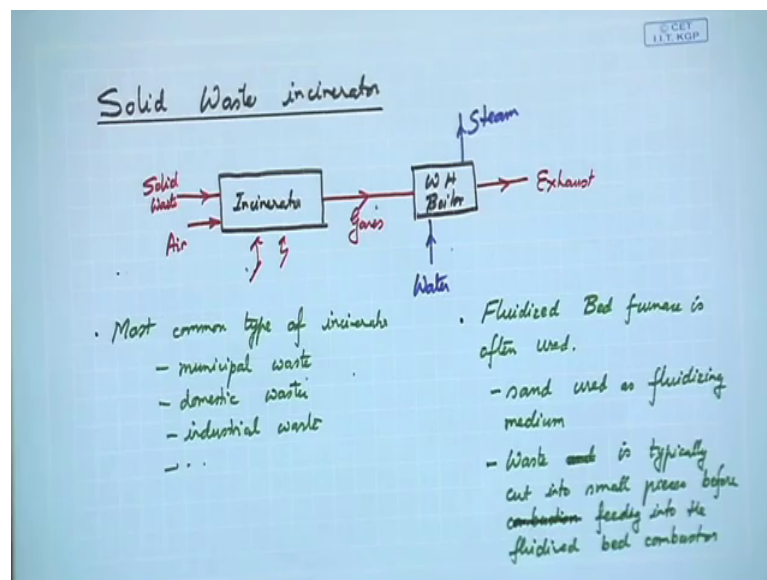 © CET
I.I.T. KGP
Solid Waste incinerator
Steam
Solid
Waste
Air
Incinerator
Gases
W H
Boiler
Exhaust
Water
. Most common type of incinerator
- municipal waste
- domestic waste
- industrial waste
- ..
. Fluidized Bed furnace is
often used.
- sand used as fluidizing
medium
- Waste is typically
cut into small pieces before
combustion feeding into the
fluidized bed combustor